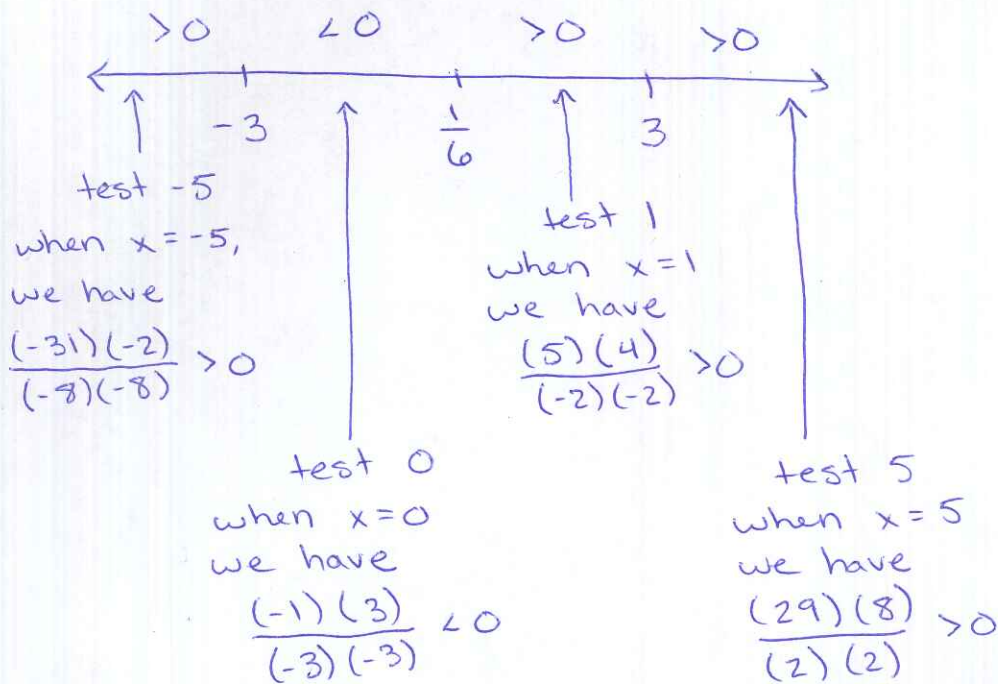 >0 <0 >0 >0
-3 1/6 1 3
test -5
when x=-5,
we have
(-31)(-2)/(-8)(-8) >0
test 1
when x=1
we have
(5)(4)/(-2)(-2) >0
test 0
when x=0
we have
(-1)(3)/(-3)(-3) <0
test 5
when x=5
we have
(29)(8)/(2)(2) >0